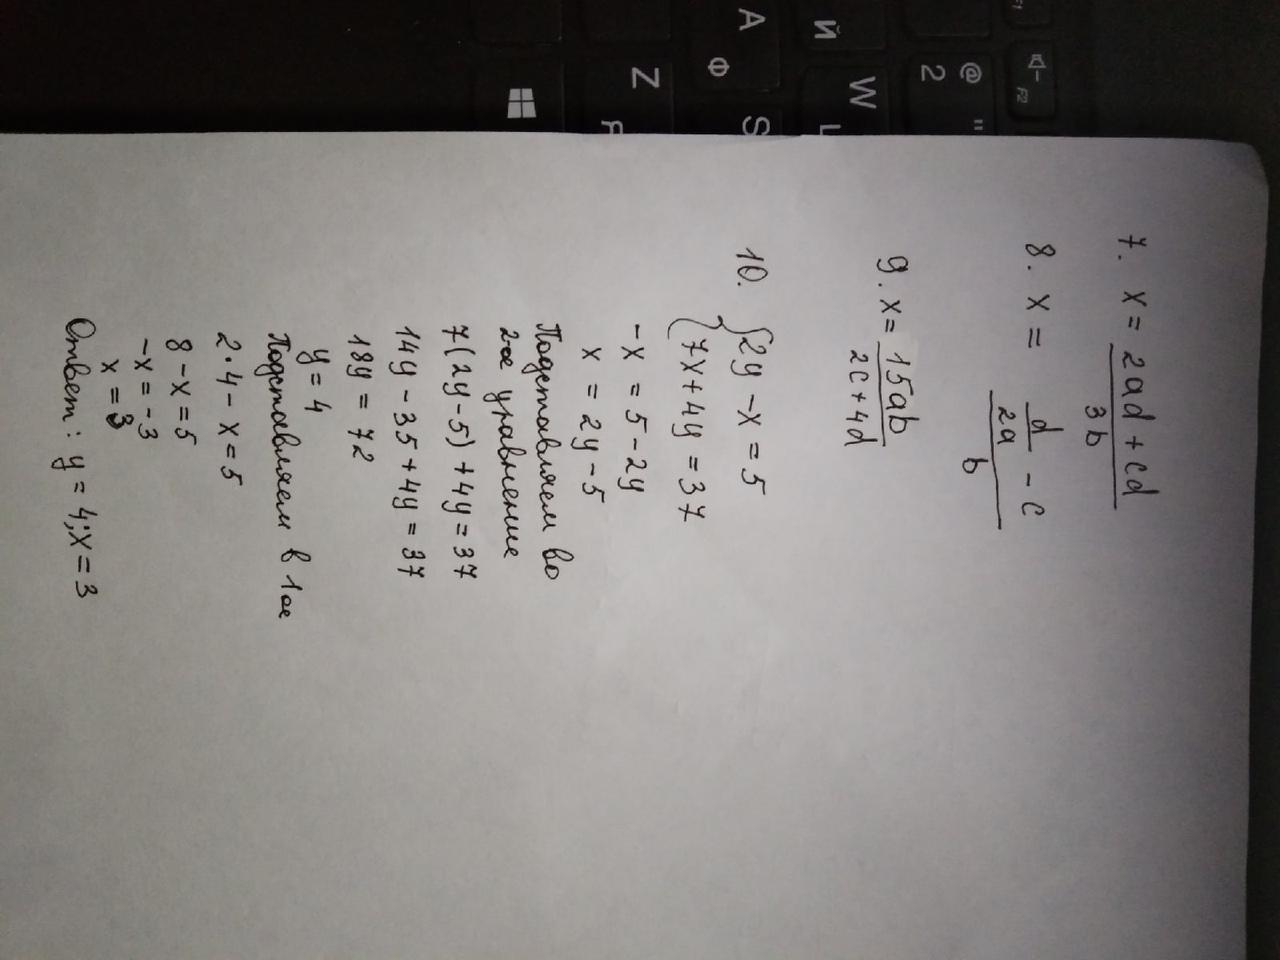 F1
F2
@
2
"
Й
W
А
Ф
S
Z
7. x = 2ad + cd
3b
8. x = d/2a - c
b
9. x = 15ab
2c + 4d
10. { 2y - x = 5
7x + 4y = 37
-x = 5 - 2y
x = 2y - 5
Подставляем во
2-ое уравнение
7(2y - 5) + 4y = 37
14y - 35 + 4y = 37
18y = 72
y = 4
Подставляем в 1 ое
2 · 4 - x = 5
8 - x = 5
-x = -3
x = 3
Ответ: y = 4; x = 3